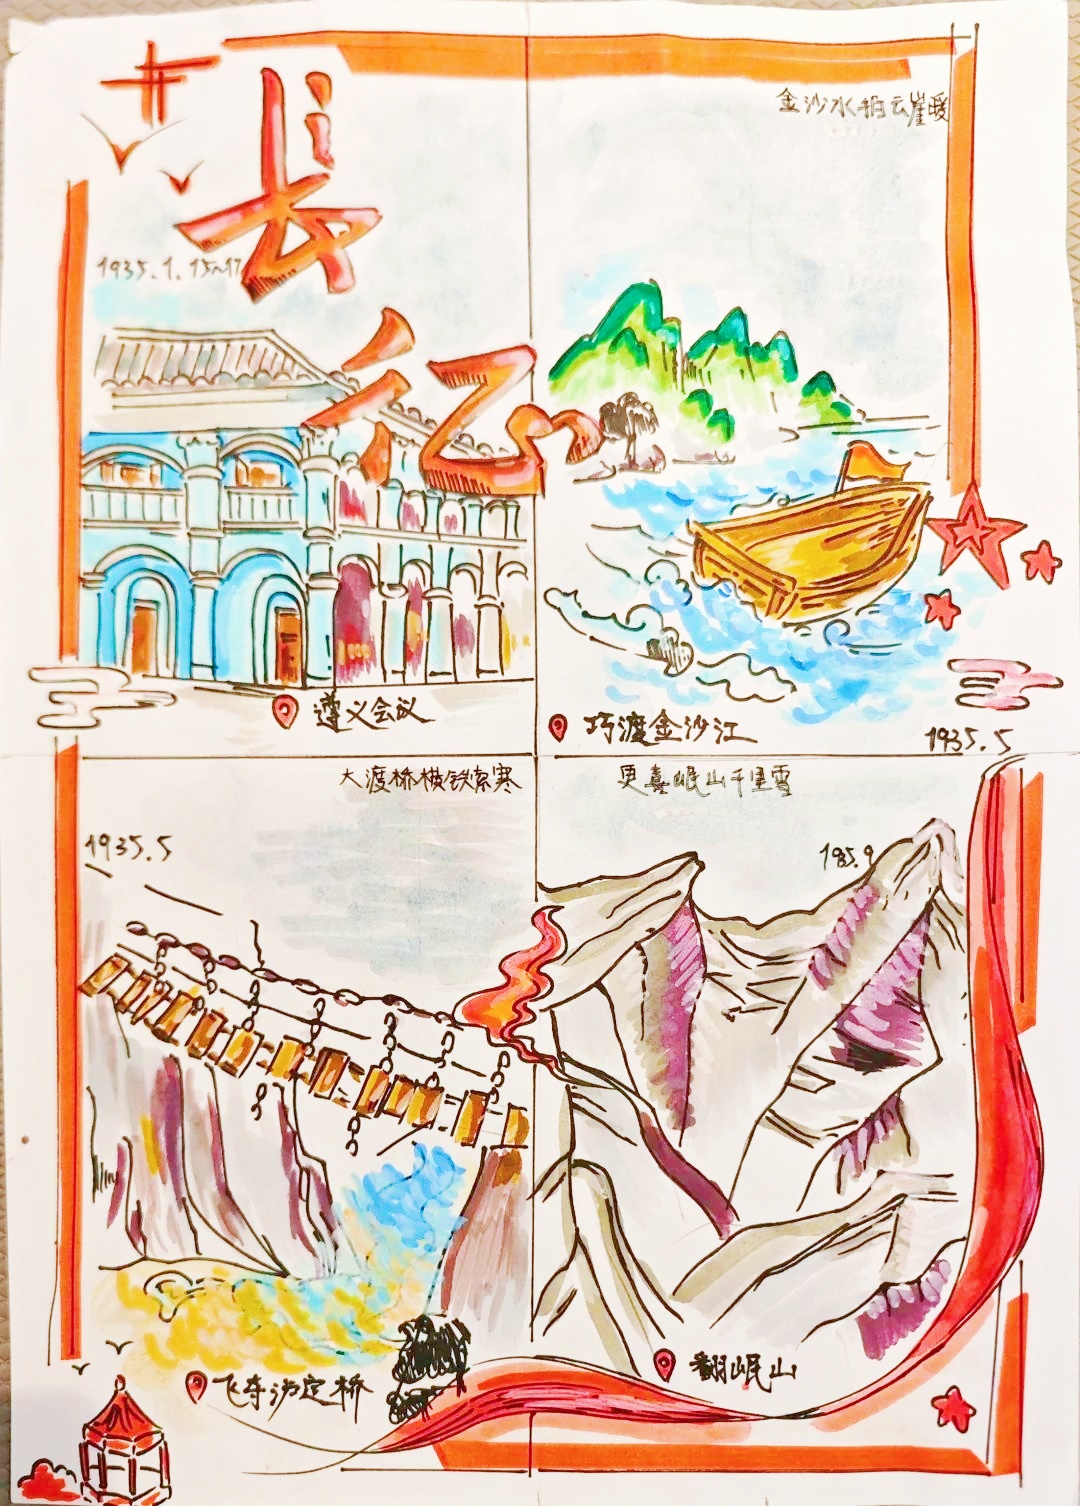 长征
1935.1.15~17
遵义会议
金沙水拍云崖暖
巧渡金沙江
1935.5
大渡桥横铁索寒
1935.5
飞夺泸定桥
更喜岷山千里雪
1935.9
翻岷山